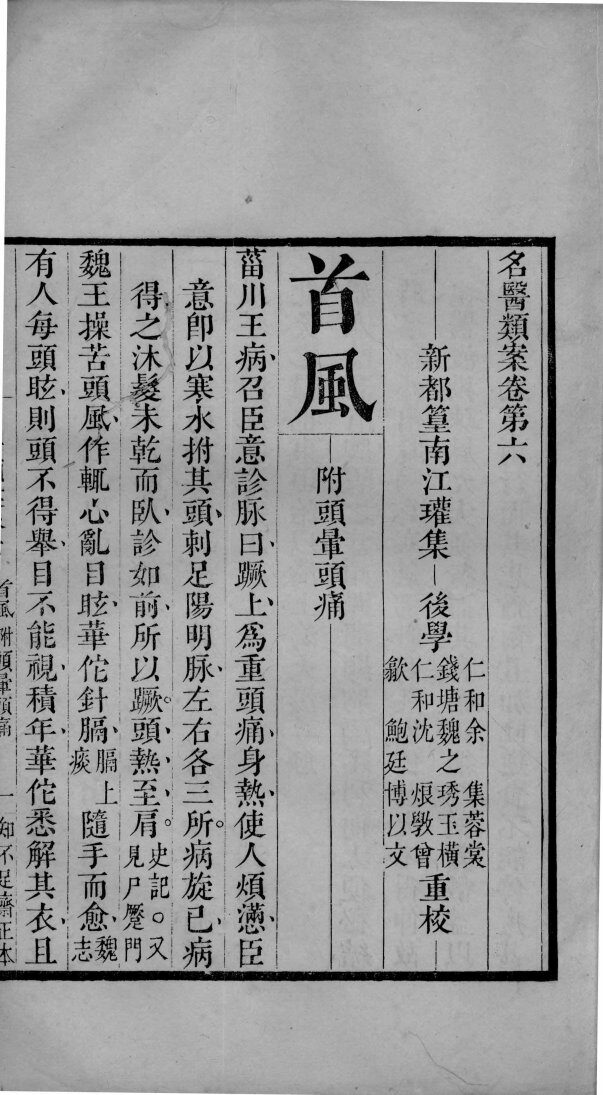 名醫類案卷第六
新都篁南江瓘集 後學
仁和余 集蓉裳
錢塘魏之琇玉橫
仁和沈 烺斆曾
歙 鮑廷博以文
重校
首風 附頭暈頭痛
菑川王病召臣意診脉曰蹶上爲重頭痛身熱使人煩懣臣
意卽以寒水拊其頭刺足陽明脉左右各三所病旋已病
得之沐髮未乾而臥診如前所以蹶頭熱至肩史記。又見尸蹷門
魏王操苦頭風作輒心亂目眩華佗針膈膈上痰隨手而愈魏志
有人每頭眩則頭不得舉目不能視積年華佗悉解其衣且
首風 附頭暈頭痛 一 知不足齋正本